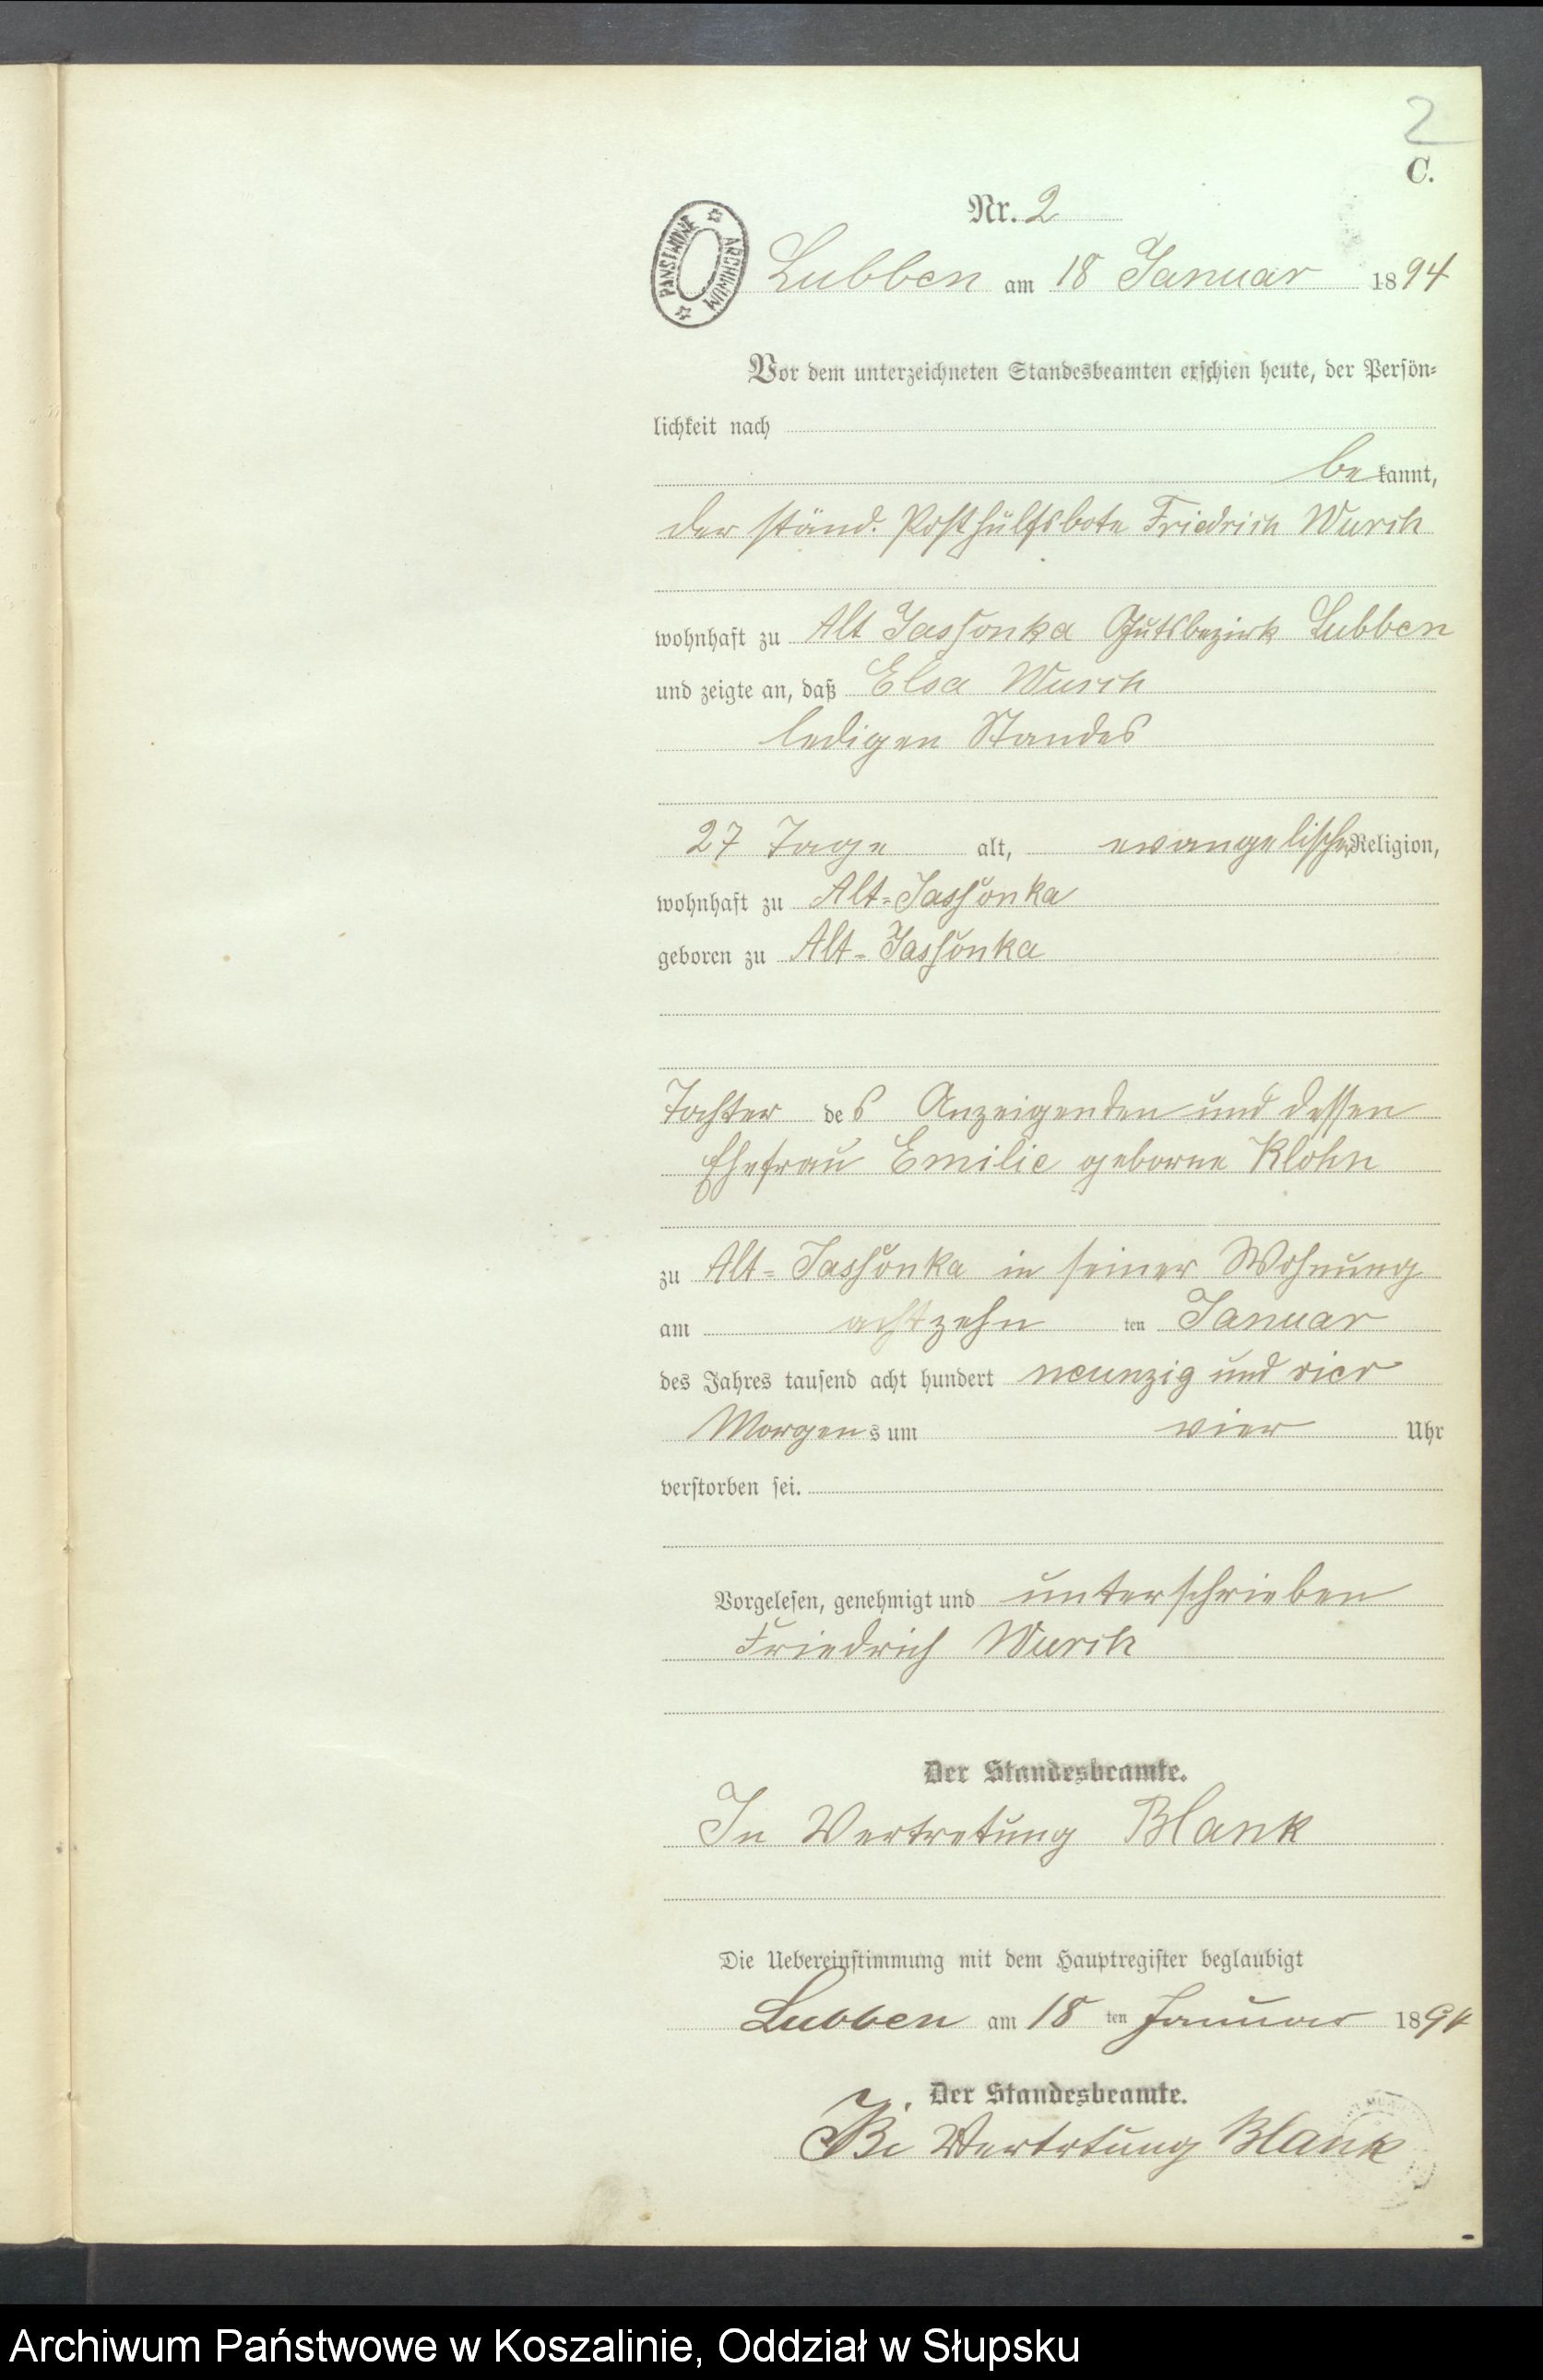 2
C.
Nr. 2
PAŃSTWOWE ARCHIWUM
Lubben am 18 Januar 1894
Vor dem unterzeichneten Standesbeamten erschien heute, der Persön-
lichkeit nach
bekannt,
der ständ. Posthülfsbote Friedrich Wursch
wohnhaft zu Alt Jassonka Gutsbezirk Lubben
und zeigte an, daß Elsa Wursch
ledigen Standes
27 Tage alt, evangelischer Religion,
wohnhaft zu Alt-Jassonka
geboren zu Alt-Jassonka
Tochter des Anzeigenden und dessen
Ehefrau Emilie geborne Klohn
zu Alt-Jassonka in seiner Wohnung
am achtzehn ten Januar
des Jahres tausend acht hundert neunzig und vier
Morgens um vier Uhr
verstorben sei.
Vorgelesen, genehmigt und unterschrieben
Friedrich Wursch
Der Standesbeamte.
In Vertretung Blank
Die Uebereinstimmung mit dem Hauptregister beglaubigt
Lubben am 18 ten Januar 1894
Der Standesbeamte.
Vertretung Blank
Archiwum Państwowe w Koszalinie, Oddział w Słupsku